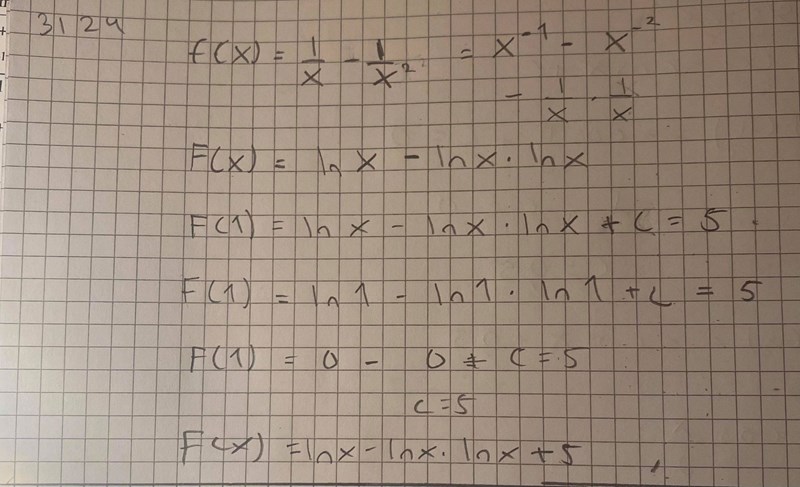 3124
f(x) = 1/x - 1/x² = x⁻¹ - x⁻²
- 1/x · 1/x
F(x) = ln x - ln x · ln x
F(1) = ln x - ln x · ln x + C = 5
F(1) = ln 1 - ln 1 · ln 1 + C = 5
F(1) = 0 - 0 + C = 5
C = 5
F(x) = ln x - ln x · ln x + 5